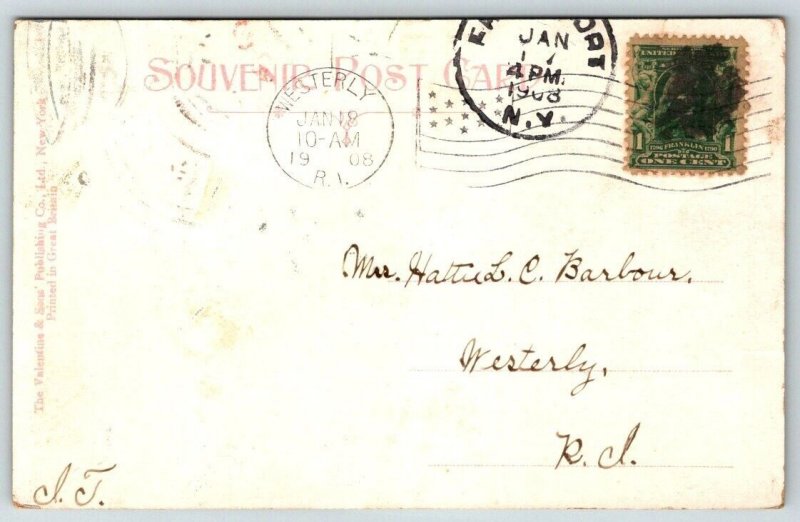 SOUVENIR POST CARD
WESTERLY
JAN 18
10-AM
19 08
R.I.
JAN
4 PM.
1908
N.Y.
1 1706 FRANKLIN 1790 1
POSTAGE
ONE CENT
The Valentine & Sons' Publishing Co., Ltd., New York
Printed in Great Britain
Mrs. Hattie L. C. Barbour.
Westerly,
R. I.
I. T.